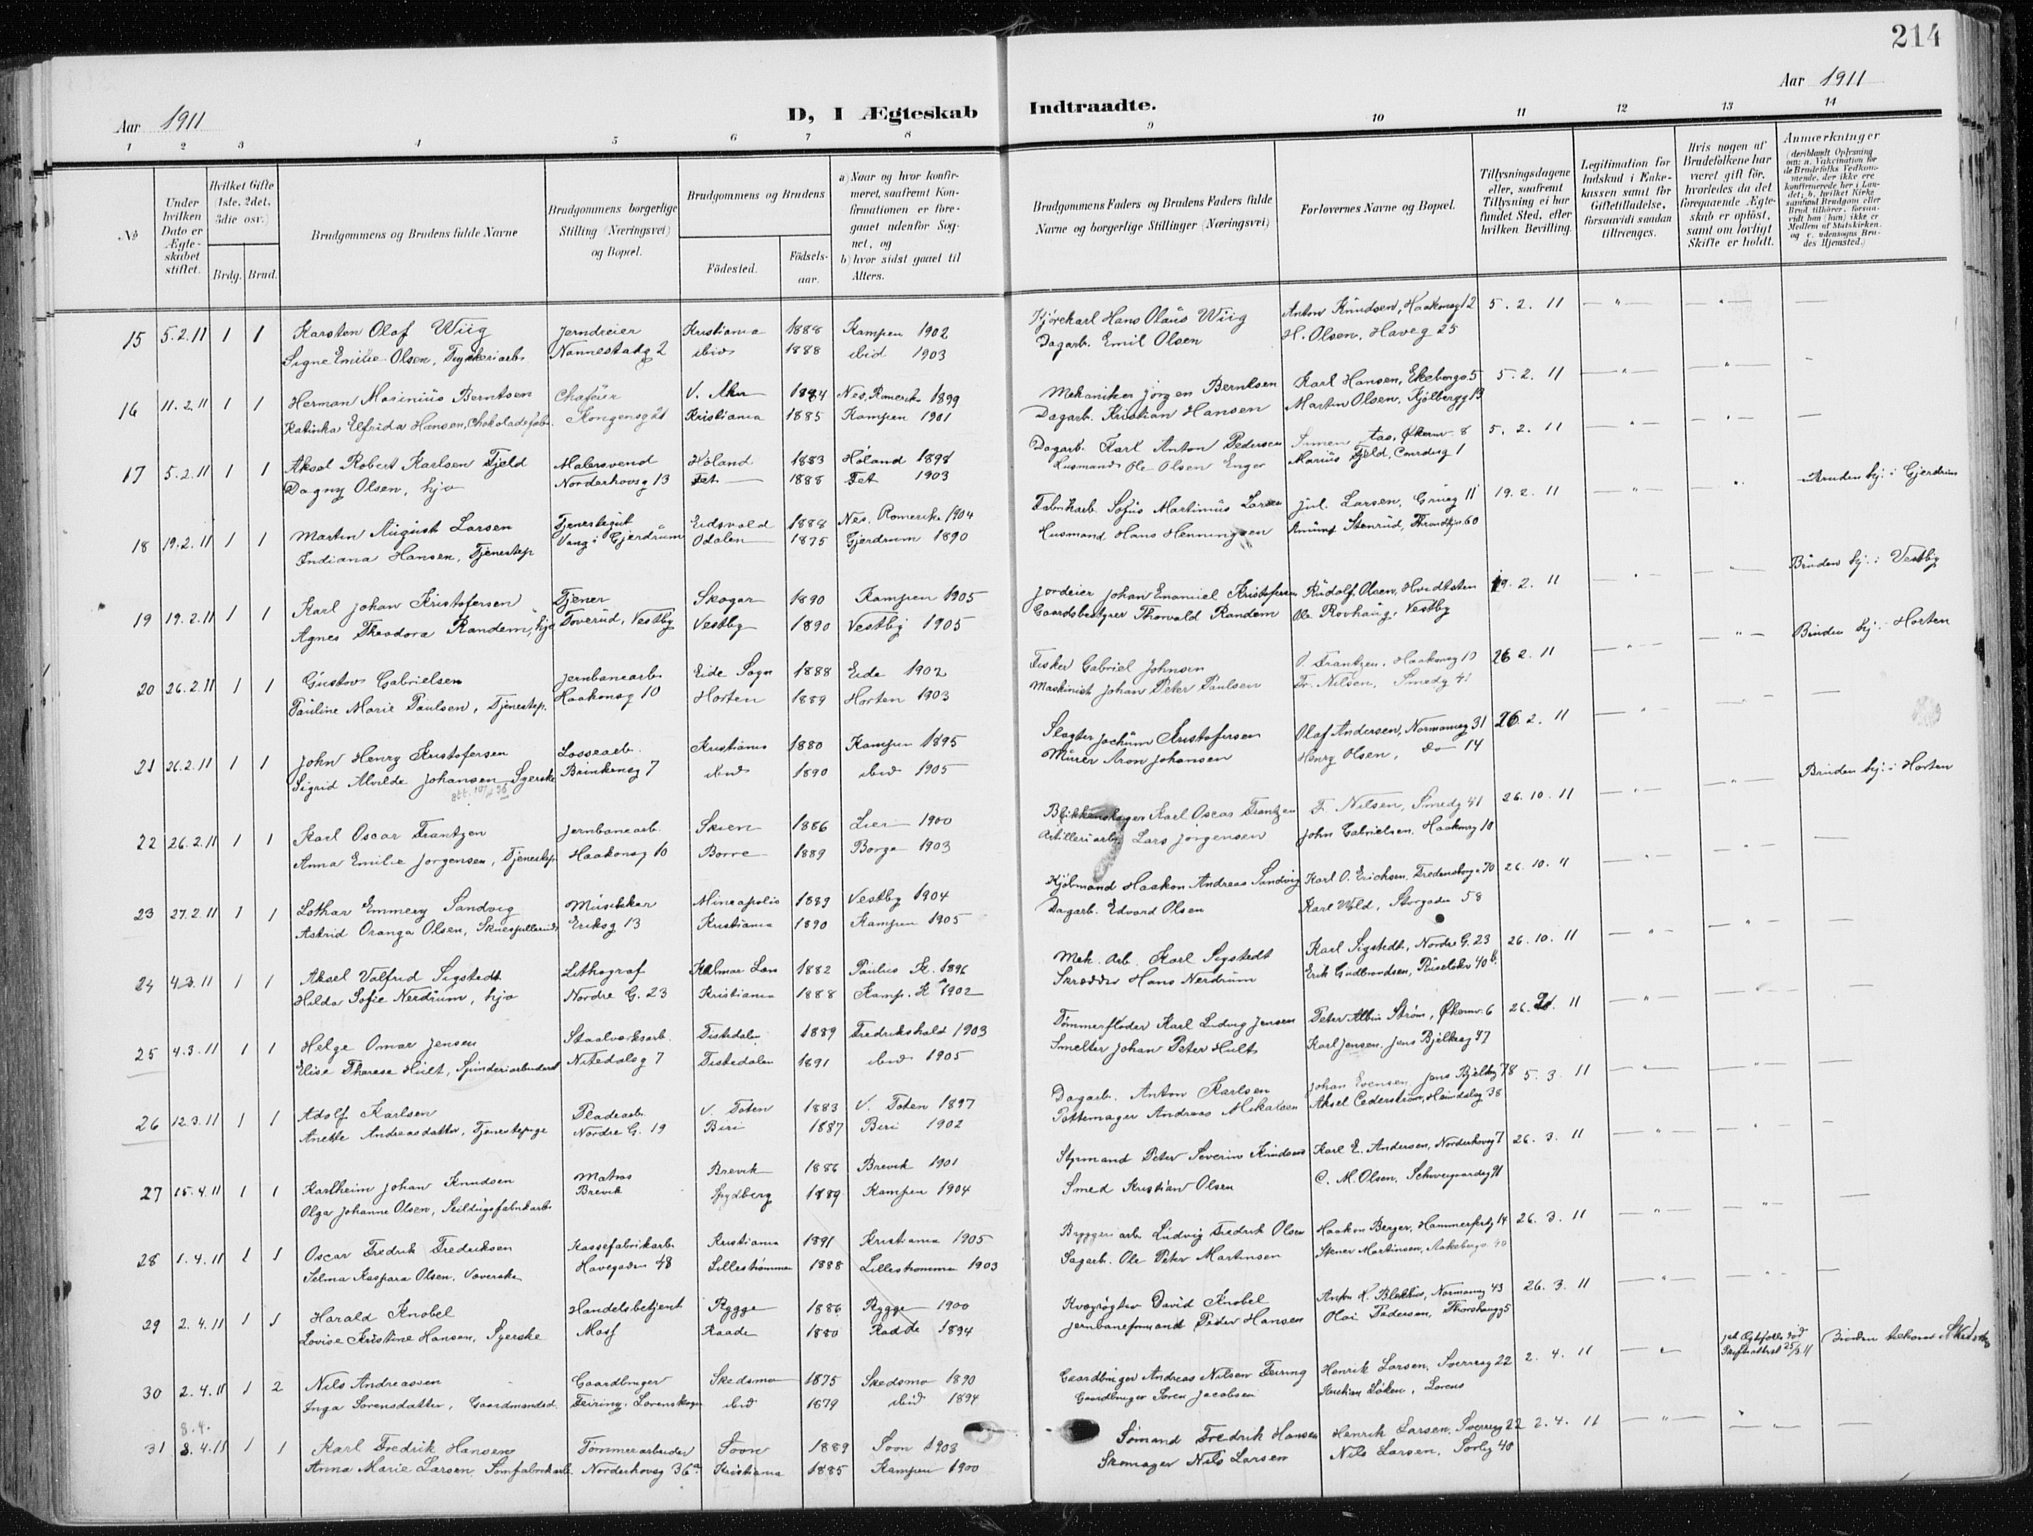 214
Aar 1911
D, I Ægteskab Indtraadte.
Aar 1911
1 2 3 4 5 6 7 8 9 10 11 12 13 14
No
Under hvilken Dato er Ægteskabet stiftet.
Hvilket Gifte (1ste, 2det, 3die osv.)
Brdg. Brud.
Brudgommens og Brudens fulde Navne
Brudgommens borgerlige Stilling (Næringsvei) og Bopæl.
Brudgommens og Brudens
Födested.
Födselsaar.
a) Naar og hvor konfirmeret, saafremt Konfirmationen er foregaaet udenfor Sognet, og
b) hvor sidst gaaet til Alters.
Brudgommens Faders og Brudens Faders fulde Navne og borgerlige Stillinger (Næringsvei)
Forlovernes Navne og Bopæl.
Tillysningsdagene eller, saafremt Tillysning ei har fundet Sted, efter hvilken Bevilling.
Legitimation for Indskud i Enkekassen samt for Giftetilladelse, forsaavidt saadan tiltrænges.
Hvis nogen af Brudefolkene har været gift før, hvorledes da det foregaaende Ægteskab er opløst, samt om lovligt Skifte er holdt.
Anmærkninger
15 5.2.11 1 1 Karsten Olaf Wiig Jerndreier Kristiania 1888 Kampen 1902 Kjørekarl Hans Olaus Wiig Anton Knudsen, Haakonsg 12 5. 2. 11
Signe Emilie Olsen, Trykkeriarb. Nannestadg 2 ibid 1888 ibid 1903 Dagarb. Emil Olsen H. Olsen, Haveg 25
16 11.2.11 1 1 Herman Marinius Berntsen Chaføer V. Aker 1884 Nes, Romerike 1899 Mekaniker Jörgen Berntsen Karl Hansen, Ekebergg 5 5. 2. 11
Katinka Elfrida Hansen, Chokoladefab. Kongensg 21 Kristiania 1885 Kampen 1901 Dagarb. Kristian Hansen Martin Olsen, Kjølbergg 13
17 5.2.11 1 1 Aksel Robert Karlsen Fjeld Malersvend Høland 1883 Høland 1898 Dagarb. Karl Anton Pedersen 5. 2. 11
Dagny Olsen, hjo Norderhovsg 13 Fet 1888 Fet 1903 Husmand Ole Olsen Enger Marius Fjeld,
18 19.2.11 1 1 Martin August Larsen Tjenestegut Eidsvold 1888 Nes, Romerike 1904 Fabrikarb. Sofus Martinius Larsen Jul. Larsen, Grüneg 11 19. 2. 11 Bruden hj. i Gjerdrum
Indiana Hansen, Tjenestep Vang i Gjerdrum Odalen 1875 Gjerdrum 1890 Husmand Hans Henningsen Amund Stenrud, Throndhjg 60
19 19.2.11 1 1 Karl Johan Kristofersen Tjener Skoger 1890 Kampen 1905 Jordeier Johan Emanuel Kristofersen Rudolf Olsen, Hvidtsten 19. 2. 11 Bruden hj. i Vestby
Agnes Theodora Randem, hjo Toverud, Vestby Vestby 1890 Vestby 1905 Gaardsbestyrer Thorvald Randem Ole Rovhaug, Vestby
20 26.2.11 1 1 Gustav Gabrielsen Jernbanearb. Eide Sogn 1888 Eide 1902 Fisker Gabriel Johnsen O. Frantzen, Haakonsg 10 26 2. 11 Bruden hj. i Horten
Pauline Marie Paulsen, Tjenestep. Haakonsg 10 Horten 1889 Horten 1903 Maskinist Johan Peter Paulsen Fr. Nilsen, Smedg 41
21 26.2.11 1 1 John Henry Kristofersen Lossearb. Kristiania 1880 Kampen 1895 Slagter Jochum Kristofersen Olaf Andersen, Normannsg 31 26. 2. 11
Sigrid Alvilde Johansen Syerske Brinkensg 7 ibid 1890 ibid 1905 Murer Aron Johansen Henry Olsen, do 14
22 26.2.11 1 1 Karl Oscar Frantzen Jernbanearb. Skien 1886 Lier 1900 Blikkenslager Karl Oscar Frantzen F. Nilsen, Smedg 41 26. 10. 11 Bruden hj. i Horten
Anna Emilie Jorgensen, Tjenestep Haakonsg 10 Borre 1889 Borge 1903 Artilleriarb. Lars Jorgensen John Gabrielsen, Haakonsg 10
23 27.2.11 1 1 Lothar Emmery Sandvig Musikker Mineapolis 1889 Vestby 1904 Kjøbmand Haakon Andreas Sandvig Karl O. Erichsen, Fredensborg 70 26. 10. 11
Astrid Oranga Olsen, Skuespillerinde Eriksg 13 Kristiania 1890 Kampen 1905 Dagarb. Edvard Olsen Karl Wold, Storgaden 58
24 4.3.11 1 1 Aksel Valfrid Sigstedt Lithograf Kalmar Len 1882 Paulus K. 1896 Mek. Arb. Karl Sigstedt Karl Sigstedt, Nordre G. 23 26. 10. 11
Hilda Sofie Nerdrum, hjo Nordre G. 23 Kristiania 1888 Kamp. K 1902 Skrædder Hans Nerdrum Erik Gudbrandsen, Ruseløkv 40 b.
25 4.3.11 1 1 Helge Omar Jensen Staalverksarb. Tistedalen 1889 Fredrikshald 1903 Tømmerfløder Karl Ludvig Jensen Peter Albin Strøm, Økernv. 6 26. 11
Elise Therese Hult, Spinderiarbeiderske Nitedalsg 7 Tistedalen 1891 ibid 1905 Smelter Johan Peter Hult Karl Jensen, Jens Bjelkesg 47
26 12.3.11 1 1 Adolf Karlsen Pladearb. V. Toten 1883 V. Toten 1897 Dagarb. Anton Karlsen Johan Evensen, Jens Bjelkesg 78 5. 3. 11
Anette Andreasdatter, Tjenestepige Nordre G. 19 Biri 1887 Biri 1902 Pottemager Andreas Mikalsen Aksel Cederstrøm, Heimdalsg 38
27 15.4.11 1 1 Karlheim Johan Knudsen Matros Brevik 1886 Brevik 1901 Styrmand Peter Severin Knudsen Karl E. Andersen, Norderhovsg 7 26. 3. 11
Olga Johanne Olsen, Seildugsfabrikarb. Brevik Spydberg 1889 Kampen 1904 Smed Kristian Olsen C. M. Olsen, Schweigaardsg 91
28 1.4.11 1 1 Oscar Fredrik Fredriksen Kassefabrikarb. Kristiania 1891 Kristiania 1905 Bryggeriarb. Ludvig Fredrik Olsen Haakon Berger, Hammerfestg 14 26. 3. 11
Selma Kaspara Olsen, Væverske Havegaden 48 Lillestrømmen 1888 Lillestrømmen 1903 Sagarb. Ole Peter Martinsen Stener Martinsen, Aakebergv. 40
29 2.4.11 1 1 Harald Knobel Handelsbetjent Rygge 1886 Rygge 1900 Kvægrøgter David Knobel Anton K. Blekhus, Normannsg 43 26. 3. 11
Lovise Kristine Hansen, Syerske Moss Raade 1880 Raade 1894 Jernbaneformand Peder Hansen Olai Pedersen, Thorshaugg 5
30 2.4.11 1 2 Nils Andreassen Gaardbruger Skedsmo 1875 Skedsmo 1890 Gaardbruger Andreas Nilsen Feiring Henrik Larsen, Sverresg 22 2. 4. 11
Inga Sorensdatter, Gaardmandsd. Feiring, Lørenskogen ibid 1879 ibid 1894 Gaardbruger Søren Jacobsen
8.4.
31 8.4.11 1 1 Karl Fredrik Hansen Tømmerarbeider Soon 1889 Soon 1903 Sømand Fredrik Hansen Henrik Larsen, Sverresg 22 2. 4. 11
Anna Marie Larsen, Sømfabrikarb. Norderhovsg 36 Kristiania 1885 Kampen 1900 Skomager Nils Larsen Nils Larsen, Sorlig 40